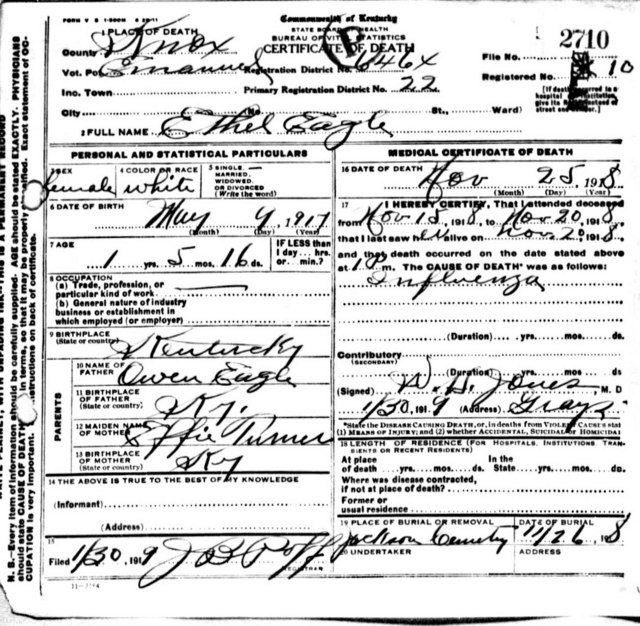 FORM V S 1-300M
Commonwealth of Kentucky
STATE BOARD OF HEALTH
BUREAU OF VITAL STATISTICS
CERTIFICATE OF DEATH
1 PLACE OF DEATH
County Knox
Vot. Pct. Emanuel Registration District No. 646x
Inc. Town Primary Registration District No. 22
City (No. St., Ward)
File No. 2710
Registered No. 10
[If death occurred in a hospital or institution, give its NAME instead of street and number.]
2 FULL NAME Ethel Eagle
PERSONAL AND STATISTICAL PARTICULARS
3 SEX female
4 COLOR OR RACE white
5 SINGLE, MARRIED, WIDOWED, OR DIVORCED (Write the word)
6 DATE OF BIRTH May 9, 1917
(Month) (Day) (Year)
7 AGE 1 yrs. 5 mos. 16 ds.
IF LESS than 1 day... hrs. or... min.?
8 OCCUPATION
(a) Trade, profession, or particular kind of work
(b) General nature of industry business or establishment in which employed (or employer)
9 BIRTHPLACE (State or country) Kentucky
PARENTS
10 NAME OF FATHER Owen Eagle
11 BIRTHPLACE OF FATHER (State or country) Ky.
12 MAIDEN NAME OF MOTHER Effie Turner
13 BIRTHPLACE OF MOTHER (State or country) Ky
14 THE ABOVE IS TRUE TO THE BEST OF MY KNOWLEDGE
(Informant)
(Address)
15 Filed 1/30 1919
REGISTRAR
MEDICAL CERTIFICATE OF DEATH
16 DATE OF DEATH Nov 25 1918
(Month) (Day) (Year)
17 I HEREBY CERTIFY, That I attended deceased
from Nov 15 1918, to Nov 20 1918,
that I last saw her alive on Nov. 20 1918,
and that death occurred on the date stated above
at m. The CAUSE OF DEATH* was as follows:
Influenza
(Duration) yrs. mos. ds
Contributory (SECONDARY)
(Duration) yrs. mos. ds
(Signed) W. H. Jones, M. D
1/30 1919 (Address) Grays
*State the DISEASE CAUSING DEATH, or, in deaths from VIOLENT CAUSES state (1) MEANS OF INJURY; and (2) whether ACCIDENTAL, SUICIDAL or HOMICIDAL
18 LENGTH OF RESIDENCE (FOR HOSPITALS, INSTITUTIONS, TRANSIENTS OR RECENT RESIDENTS)
At place of death yrs. mos. ds. In the State yrs. mos. ds
Where was disease contracted, if not at place of death?
Former or usual residence
19 PLACE OF BURIAL OR REMOVAL Jackson Cemetery
DATE OF BURIAL 11/26 1918
20 UNDERTAKER
ADDRESS
N. B.—Every item of information should be carefully supplied. AGE should be stated EXACTLY. PHYSICIANS should state CAUSE OF DEATH in terms, so that it may be properly classified. Exact statement of OCCUPATION is very important. instructions on back of certificate.